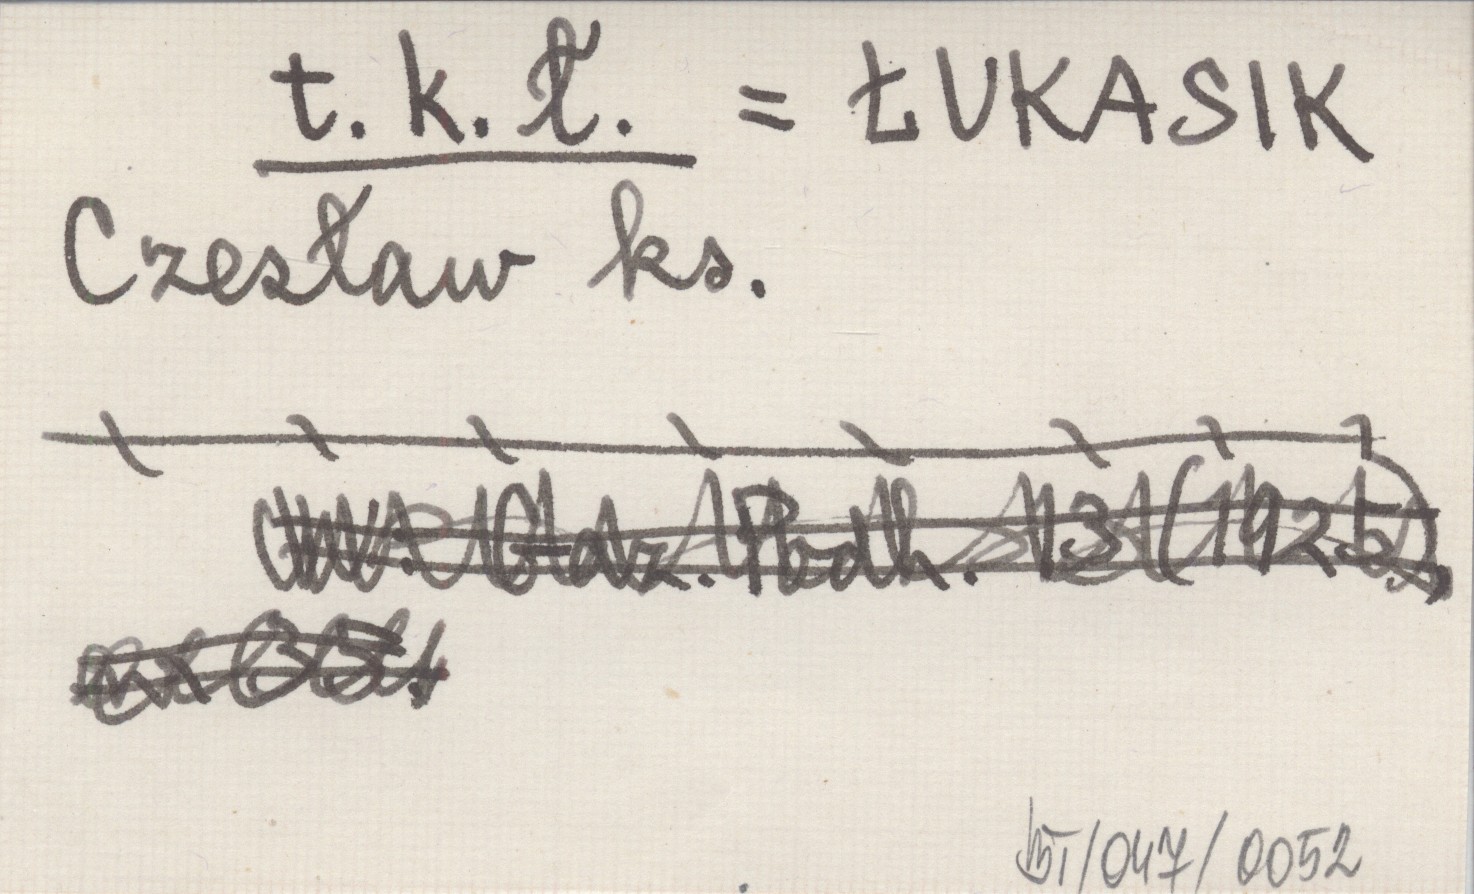 t. k. ł. = ŁUKASIK
Czesław ks.
Gaz. Podh. 13 (1925),
/047/0052